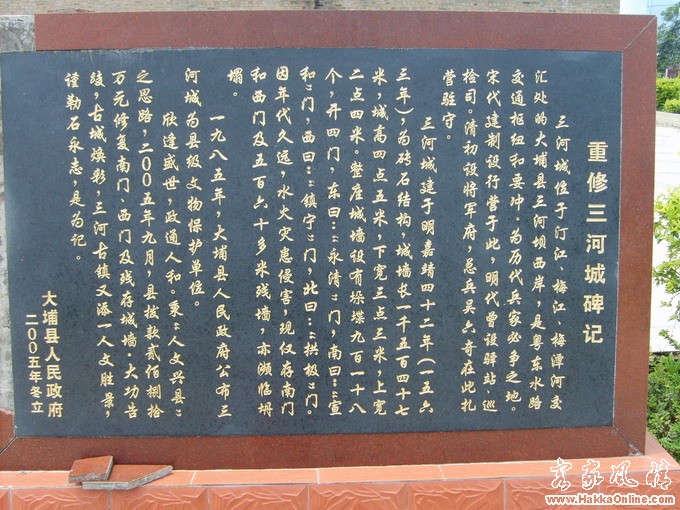 重修三河城碑记
三河城位于汀江、梅江、梅潭河交
汇处的大埔县三河坝西岸，是粤东水路
交通枢纽和要冲，为历代兵家必争之地。
宋代建制设行营于此，明代曾设驿站巡
检司。清初设将军府，总兵吴六奇在此扎
营驻守。
三河城建于明嘉靖四十二年（一五六
三年），为砖石结构，城墙长一千五百四十七
米，城高四点五米，下宽三点三米，上宽
二点四米。整座城墙设有垛堞九百一十八
个，开四门，东曰：“永清”门，南曰：“宣
和”门，西曰：“镇宁”门，北曰：“拱极”门。
因年代久远，水火灾患侵害，现仅存南门
和西门及五百六十多米残墙，亦濒临坍
塌。
一九八五年，大埔县人民政府公布三
河城为县级文物保护单位。
欣逢盛世，政通人和。秉“人文兴县”
之思路，二00五年九月，县拨款贰佰捌拾
万元修复南门、西门及残存城墙。大功告
竣，古城焕彩，三河古镇又添一人文胜景，
谨勒石永志，是为记。
大埔县人民政府
二00五年冬立
客家风情
www.HakkaOnline.com